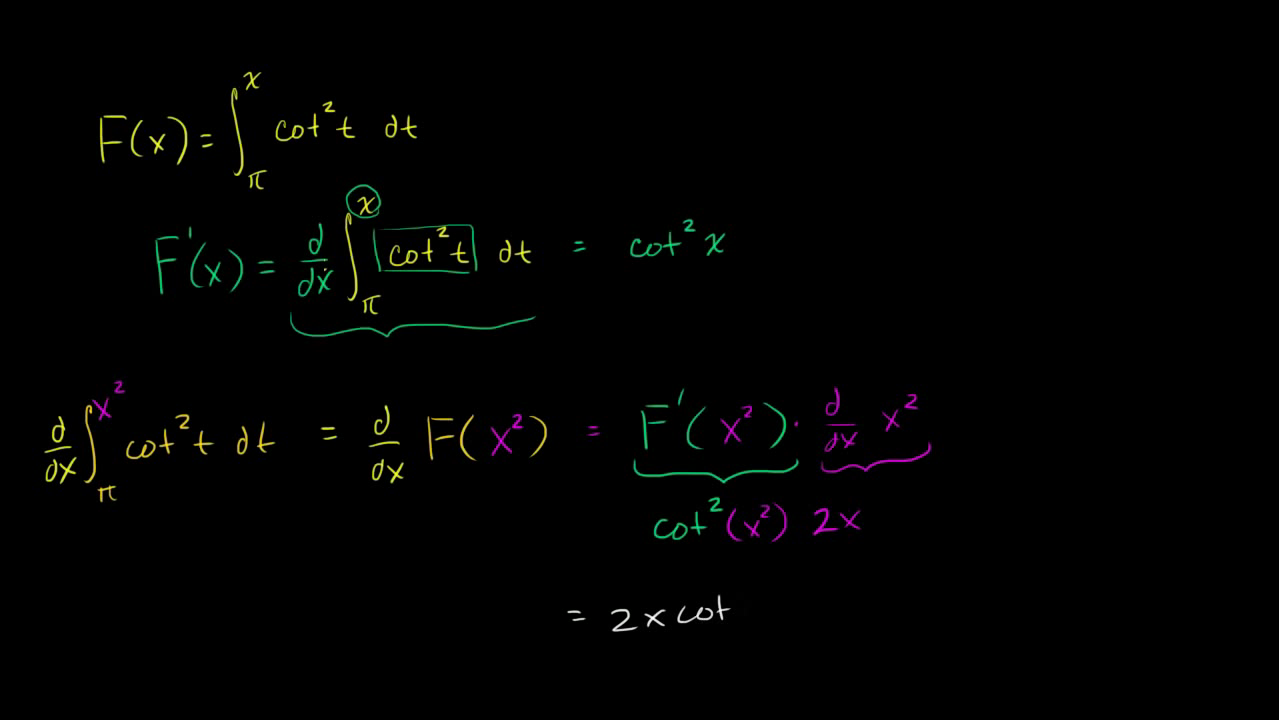 F(x) = ∫_π^x cot² t dt
F'(x) = d/dx ∫_π^x cot² t dt = cot² x
d/dx ∫_π^{x²} cot² t dt = d/dx F(x²) = F'(x²) · d/dx x²
cot² (x²) 2x
= 2x cot